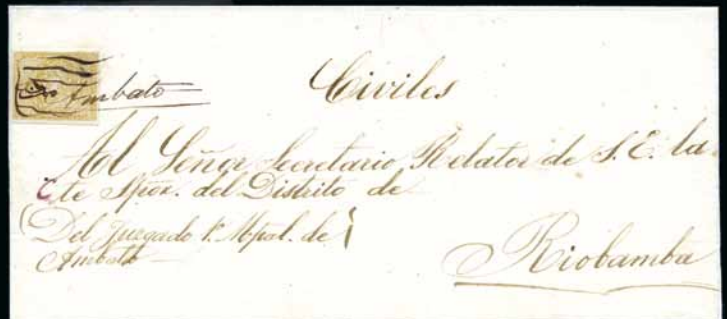 De Ambato
Civiles
Al Señor Secretario Relator de S. E. la
Cte Spor. del Distrito de
Del Juzgado 1º Mpal. de
Ambato
Riobamba